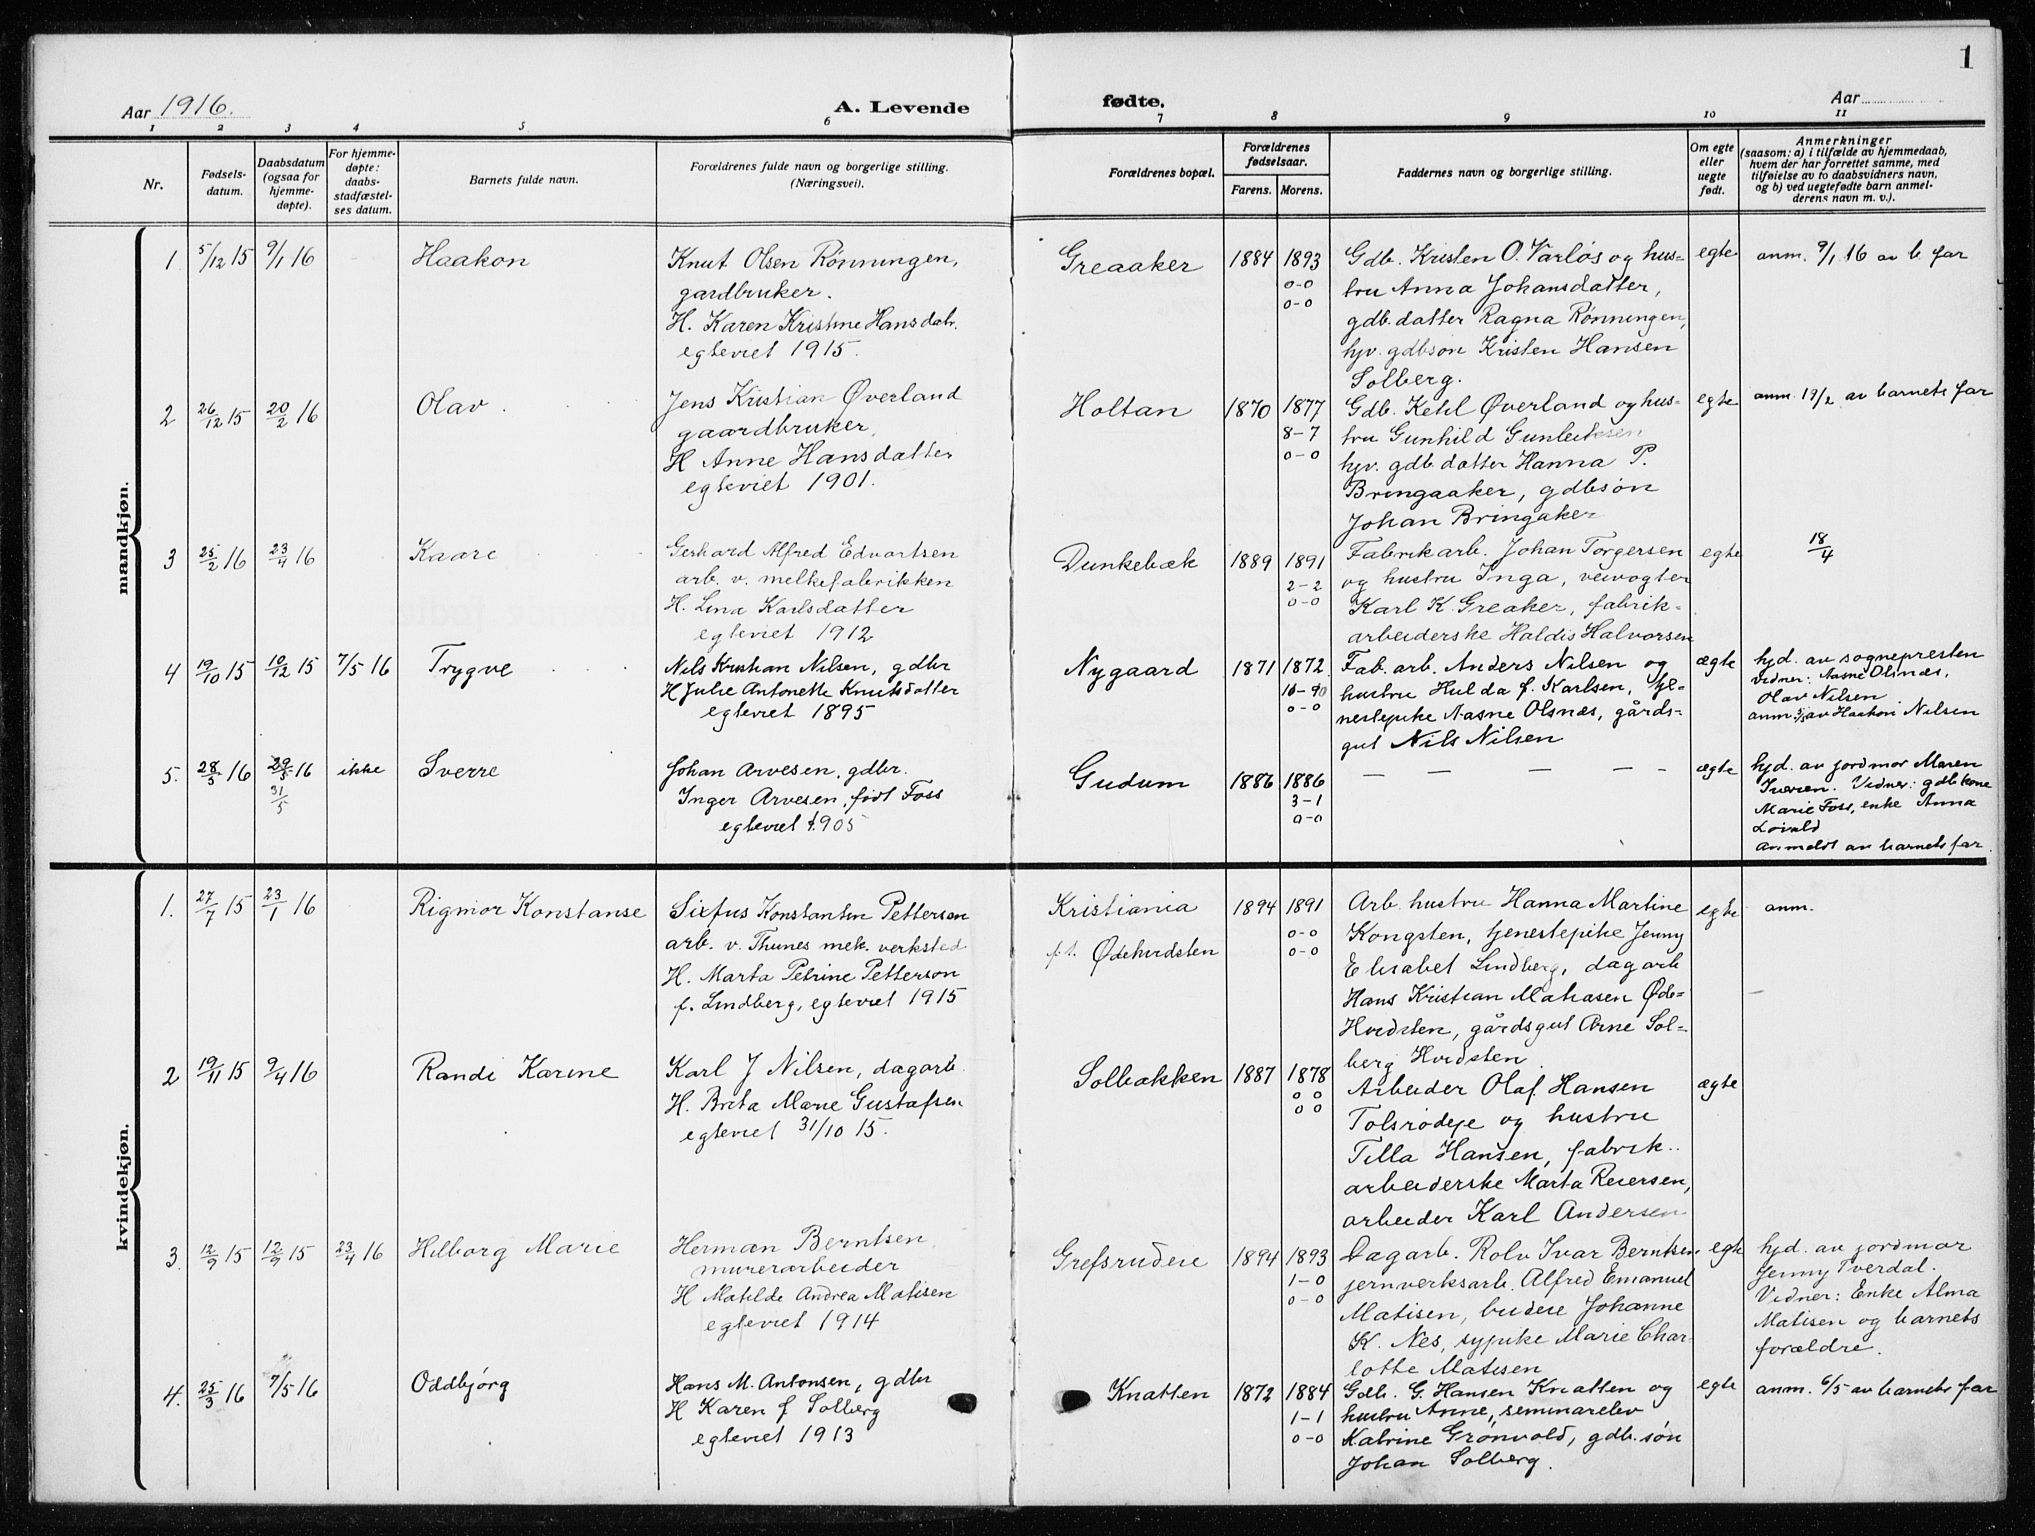 1
Aar 1916.
A. Levende
fødte.
Aar
1 2 3 4 5 6 7 8 9 10 11
Nr.
Fødsels-
datum.
Daabsdatum
(ogsaa for
hjemme-
døpte).
For hjemme-
døpte:
daabs-
stadfæstel-
ses datum.
Barnets fulde navn.
Forældrenes fulde navn og borgerlige stilling.
(Næringsvei).
Forældrenes bopæl.
Forældrenes
fødselsaar.
Farens. Morens.
Faddernes navn og borgerlige stilling.
Om egte
eller
uegte
født.
Anmerkninger
(saasom: a) i tilfælde av hjemmedaab,
hvem der har forrettet samme, med
tilføielse av to daabsvidners navn,
og b) ved uegtefødte barn anmel-
derens navn m. v.).
mandkjøn.
1 5/12 15 9/1 16
Haakon
Knut Olsen Rønningen,
gardbruker.
H. Karen Kristine Hansdatr.
egteviet 1915.
Greaaker
1884 1893
0-0
0-0
Gdb. Kristen O. Varløs og hus-
tru Anna Johansdatter,
gdb.datter Ragna Rønningen,
hjv. gdbsøn Kristen Hansen
Solberg.
egte
anm. 9/1 16 av b. far
2 26/12 15 20/2 16
Olav
Jens Kristian Øverland
gaardbruker
H Anne Hansdatter
egteviet 1901.
Holtan
1870 1877
8-7
0-0
Gdb. Ketil Øverland og hus-
tru Gunhild Gunleiksen
hjv. gdb.datter Hanna P.
Bringaaker, gdbsøn
Johan Bringaker
egte
anm. 19/2 av barnets far
3 25/2 16 23/4 16
Kaare
Gerhard Alfred Edvartsen
arb. v. melkefabrikken
H. Lina Karlsdatter
egteviet 1912
Dunkebæk
1889 1891
2-2
0-0
Fabrikarb. Johan Torgersen
og hustru Inga, veivogter
Karl K. Greaker, fabrik-
arbeiderske Haldis Halvorsen
egte
18/4
4 19/10 15 10/12 15 7/5 16
Trygve
Nils Kristian Nilsen, gdbr
H Julie Antonette Knutsdatter
egteviet 1895
Nygaard
1871 1872
0-0
Fab. arb. Anders Nilsen og
hustru Hulda f. Karlsen, tje-
nestepike Aasne Olsnæs, gårds-
gut Nils Nilsen
ægte
hjd. av sognepresten
vidner: Aasne Olsnæs,
Olav Nilsen
anm. av Haakon Nilsen
5. 28/5 16 29/5 16 ikke
31/5
Sverre
Johan Arvesen, gdbr.
Inger Arvesen, født Foss
egteviet 1905
Gudum
1886 1886
3-1
0-0
— — — — -
ægte
hjd. av jordmor Maren
Iversen. Vidner: gdb kone
Marie Foss, enke Anna
Anmeldt av barnets far.
kvindekjøn.
1. 27/7 15 23/1 16
Rigmor Konstanse
Sixfus Konstantin Pettersen
arb. v. Thunes mek. verksted
H. Marta Petrine Petterson
f. Lindberg, egteviet 1915
Kristiania
f.t. Ødehvidsten
1894 1891
0-0
0-0
Arb. hustru Hanna Martine
Kongsten, tjenestepike Jenny
Elisabet Lindberg, dagarb
Hans Kristian Matiasen Øde-
Hvidsten, gårdsgut Arne Sol-
berg Hvidsten
egte
anm.
2 19/11 15 9/4 16
Randi Karine
Karl J Nilsen, dagarb.
H. Brita Marie Gustafsen
egteviet 31/10 15.
Solbakken
1887 1878
0 0
0 0
Arbeider Olaf Hansen
Tolsrødeje og hustru
Tilla Hansen, fabrik-
arbeiderske Marta Reiersen,
arbeider Karl Andersen
ægte
3. 12/9 15 12/9 15 23/4 16
Hilborg Marie
Herman Berntsen
murerarbeider
H Matilde Andrea Matisen
egteviet 1914
Grefsrudeie
1894 1893
1-0
0-0
Dagarb. Rolv Ivar Berntsen
jernverksarb. Alfred Emanuel
Matisen, budeie Johanne
K. Nes, sypike Marie Char-
lotte Matisen
egte
hjd. av jordmor
Jenny Tverdal.
Vidner: Enke Alma
Matisen og barnets
forældre.
4. 25/3 16 7/5 16
Oddbjørg
Hans M. Antonsen, gdbr
H Karen f Solberg
egteviet 1913
Knatten
1872 1884
1-1
0-0
Gdb. G. Hansen Knatten og
hustru Anne, seminarelev
Katrine Grønvold, gdb. søn
Johan Solberg.
egte
anm. 6/5 av barnets far